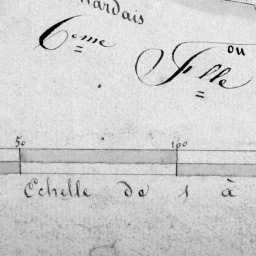 hardais
6eme
ou
Flle
50 100
Echelle de 1 à